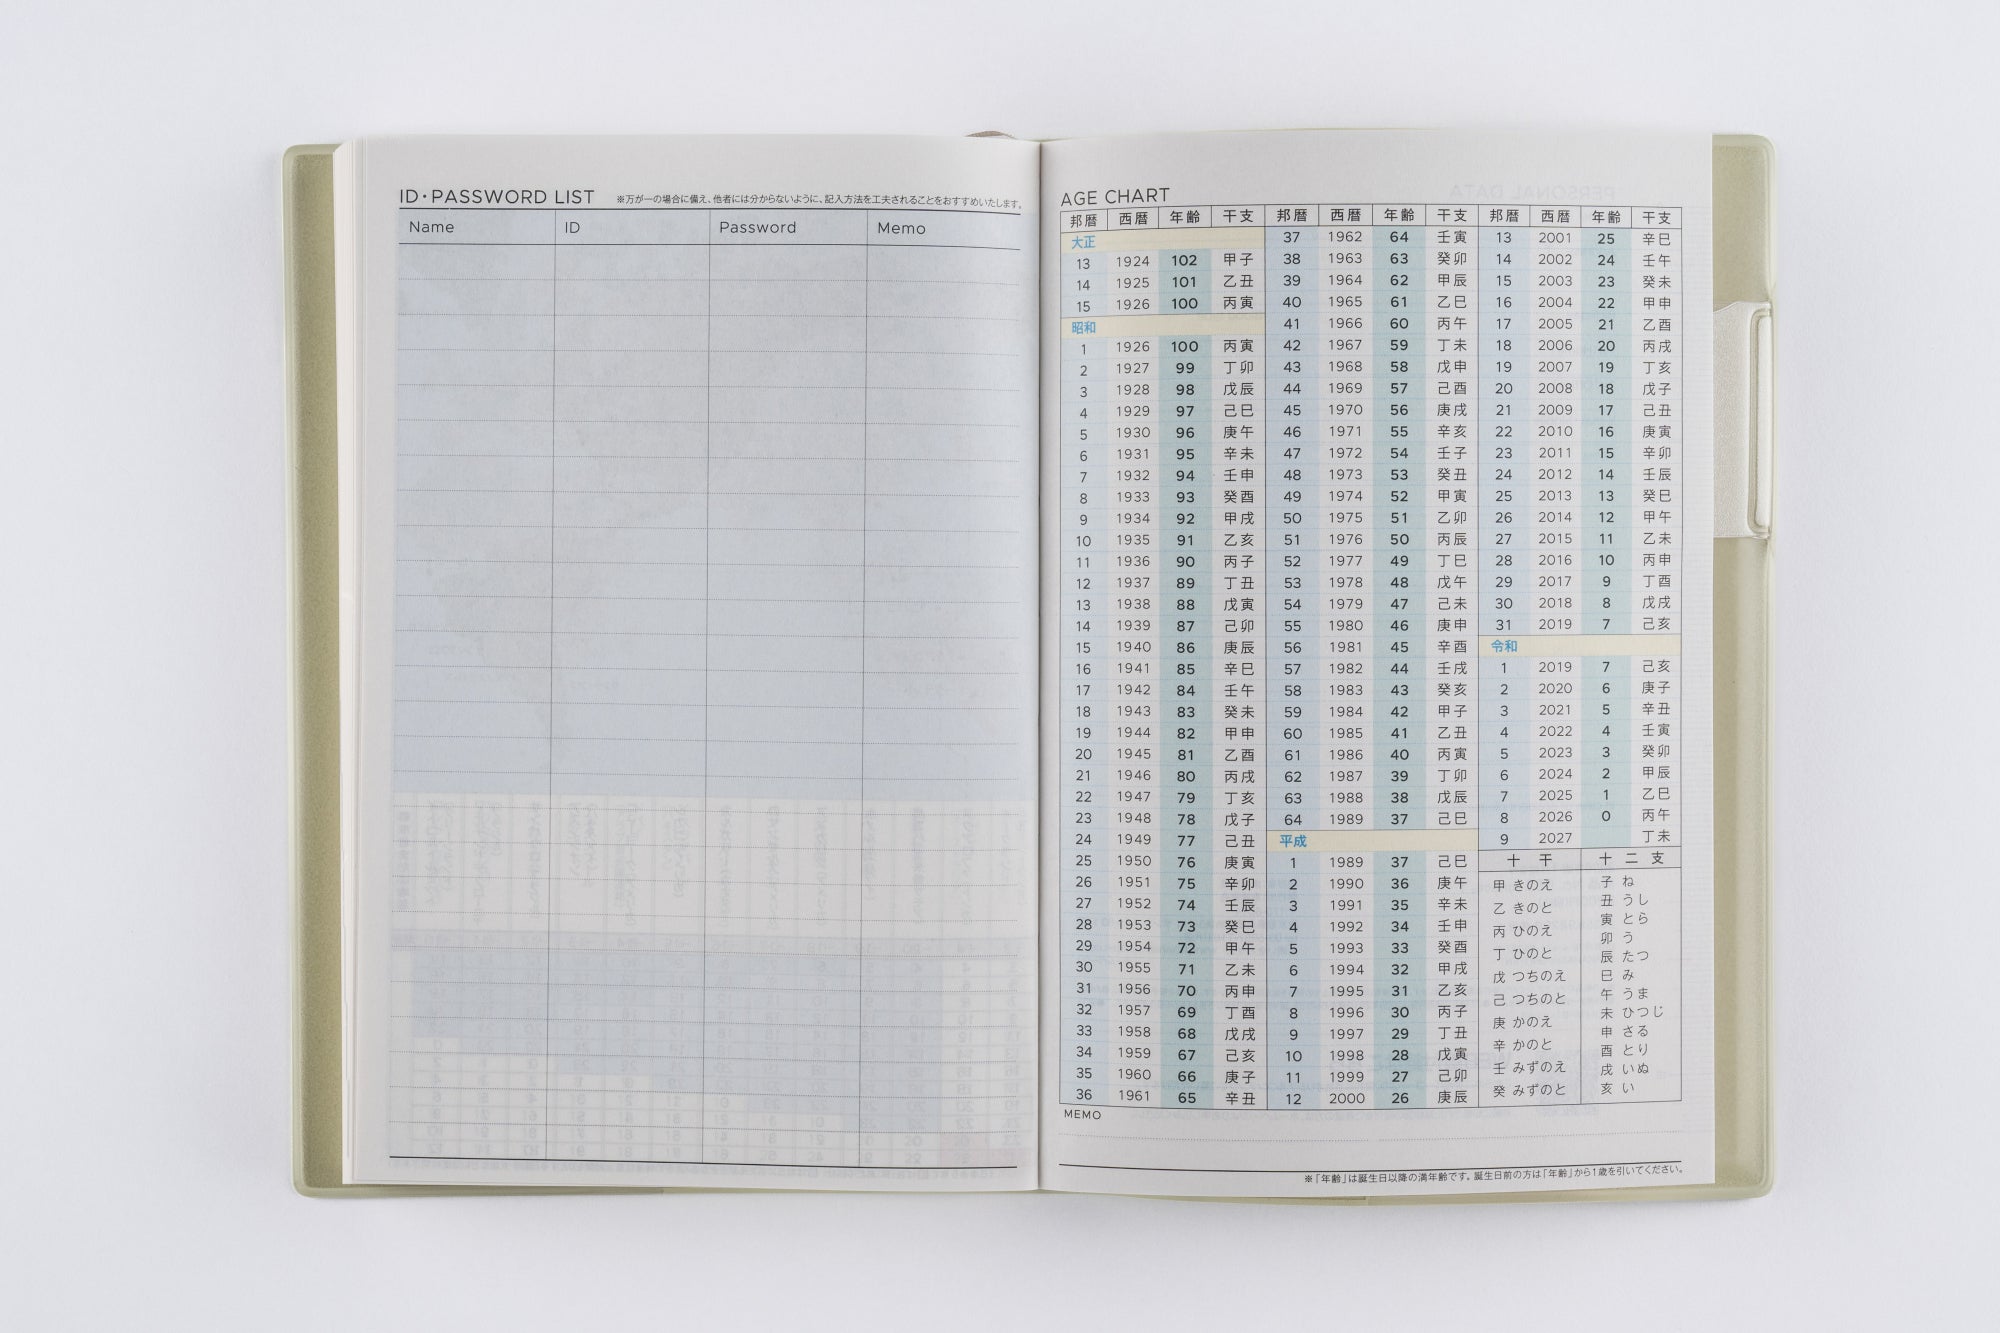 ID・PASSWORD LIST ※万が一の場合に備え、他者には分からないように、記入方法を工夫されることをおすすめいたします。
Name ID Password Memo
AGE CHART
邦暦 西暦 年齢 干支
大正
13 1924 102 甲子
14 1925 101 乙丑
15 1926 100 丙寅
昭和
1 1926 100 丙寅
2 1927 99 丁卯
3 1928 98 戊辰
4 1929 97 己巳
5 1930 96 庚午
6 1931 95 辛未
7 1932 94 壬申
8 1933 93 癸酉
9 1934 92 甲戌
10 1935 91 乙亥
11 1936 90 丙子
12 1937 89 丁丑
13 1938 88 戊寅
14 1939 87 己卯
15 1940 86 庚辰
16 1941 85 辛巳
17 1942 84 壬午
18 1943 83 癸未
19 1944 82 甲申
20 1945 81 乙酉
21 1946 80 丙戌
22 1947 79 丁亥
23 1948 78 戊子
24 1949 77 己丑
25 1950 76 庚寅
26 1951 75 辛卯
27 1952 74 壬辰
28 1953 73 癸巳
29 1954 72 甲午
30 1955 71 乙未
31 1956 70 丙申
32 1957 69 丁酉
33 1958 68 戊戌
34 1959 67 己亥
35 1960 66 庚子
36 1961 65 辛丑
邦暦 西暦 年齢 干支
37 1962 64 壬寅
38 1963 63 癸卯
39 1964 62 甲辰
40 1965 61 乙巳
41 1966 60 丙午
42 1967 59 丁未
43 1968 58 戊申
44 1969 57 己酉
45 1970 56 庚戌
46 1971 55 辛亥
47 1972 54 壬子
48 1973 53 癸丑
49 1974 52 甲寅
50 1975 51 乙卯
51 1976 50 丙辰
52 1977 49 丁巳
53 1978 48 戊午
54 1979 47 己未
55 1980 46 庚申
56 1981 45 辛酉
57 1982 44 壬戌
58 1983 43 癸亥
59 1984 42 甲子
60 1985 41 乙丑
61 1986 40 丙寅
62 1987 39 丁卯
63 1988 38 戊辰
64 1989 37 己巳
平成
1 1989 37 己巳
2 1990 36 庚午
3 1991 35 辛未
4 1992 34 壬申
5 1993 33 癸酉
6 1994 32 甲戌
7 1995 31 乙亥
8 1996 30 丙子
9 1997 29 丁丑
10 1998 28 戊寅
11 1999 27 己卯
12 2000 26 庚辰
邦暦 西暦 年齢 干支
13 2001 25 辛巳
14 2002 24 壬午
15 2003 23 癸未
16 2004 22 甲申
17 2005 21 乙酉
18 2006 20 丙戌
19 2007 19 丁亥
20 2008 18 戊子
21 2009 17 己丑
22 2010 16 庚寅
23 2011 15 辛卯
24 2012 14 壬辰
25 2013 13 癸巳
26 2014 12 甲午
27 2015 11 乙未
28 2016 10 丙申
29 2017 9 丁酉
30 2018 8 戊戌
31 2019 7 己亥
令和
1 2019 7 己亥
2 2020 6 庚子
3 2021 5 辛丑
4 2022 4 壬寅
5 2023 3 癸卯
6 2024 2 甲辰
7 2025 1 乙巳
8 2026 0 丙午
9 2027 丁未
十干
甲 きのえ
乙 きのと
丙 ひのえ
丁 ひのと
戊 つちのえ
己 つちのと
庚 かのえ
辛 かのと
壬 みずのえ
癸 みずのと
十二支
子 ね
丑 うし
寅 とら
卯 う
辰 たつ
巳 み
午 うま
未 ひつじ
申 さる
酉 とり
戌 いぬ
亥 い
MEMO
※「年齢」は誕生日以降の満年齢です。誕生日前の方は「年齢」から1歳を引いてください。